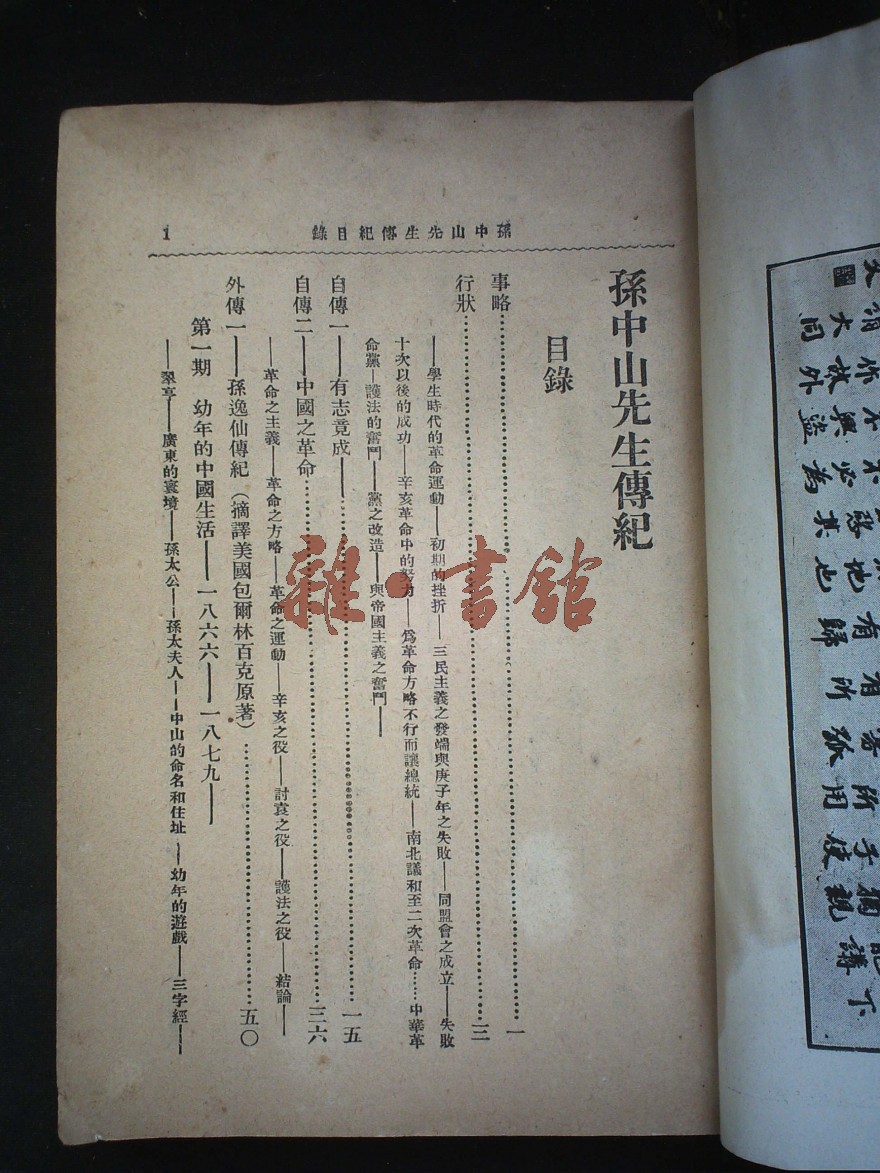 孫中山先生傳紀目錄
1
孫中山先生傳紀
目錄
事略……一
行狀……三
——學生時代的革命運動——初期的挫折——三民主義之發端與庚子年之失敗——同盟會之成立——失敗
十次以後的成功——辛亥革命中的努力——爲革命方略不行而讓總統——南北議和至二次革命……中華革
命黨——護法的奮鬥——黨之改造——與帝國主義之奮鬥——
自傳一——有志竟成——……一五
自傳二——中國之革命……三六
——革命之主義——革命之方略——革命之運動——辛亥之役——討袁之役——護法之役——結論——
外傳一——孫逸仙傳紀（摘譯美國包爾林百克原著）……五〇
第一期 幼年的中國生活——一八六六——一八七九——
——翠亨——廣東的寰境——孫太公——孫太夫人——中山的命名和住址——幼年的遊戲——三字經——
雜·書館
大同
外
盜